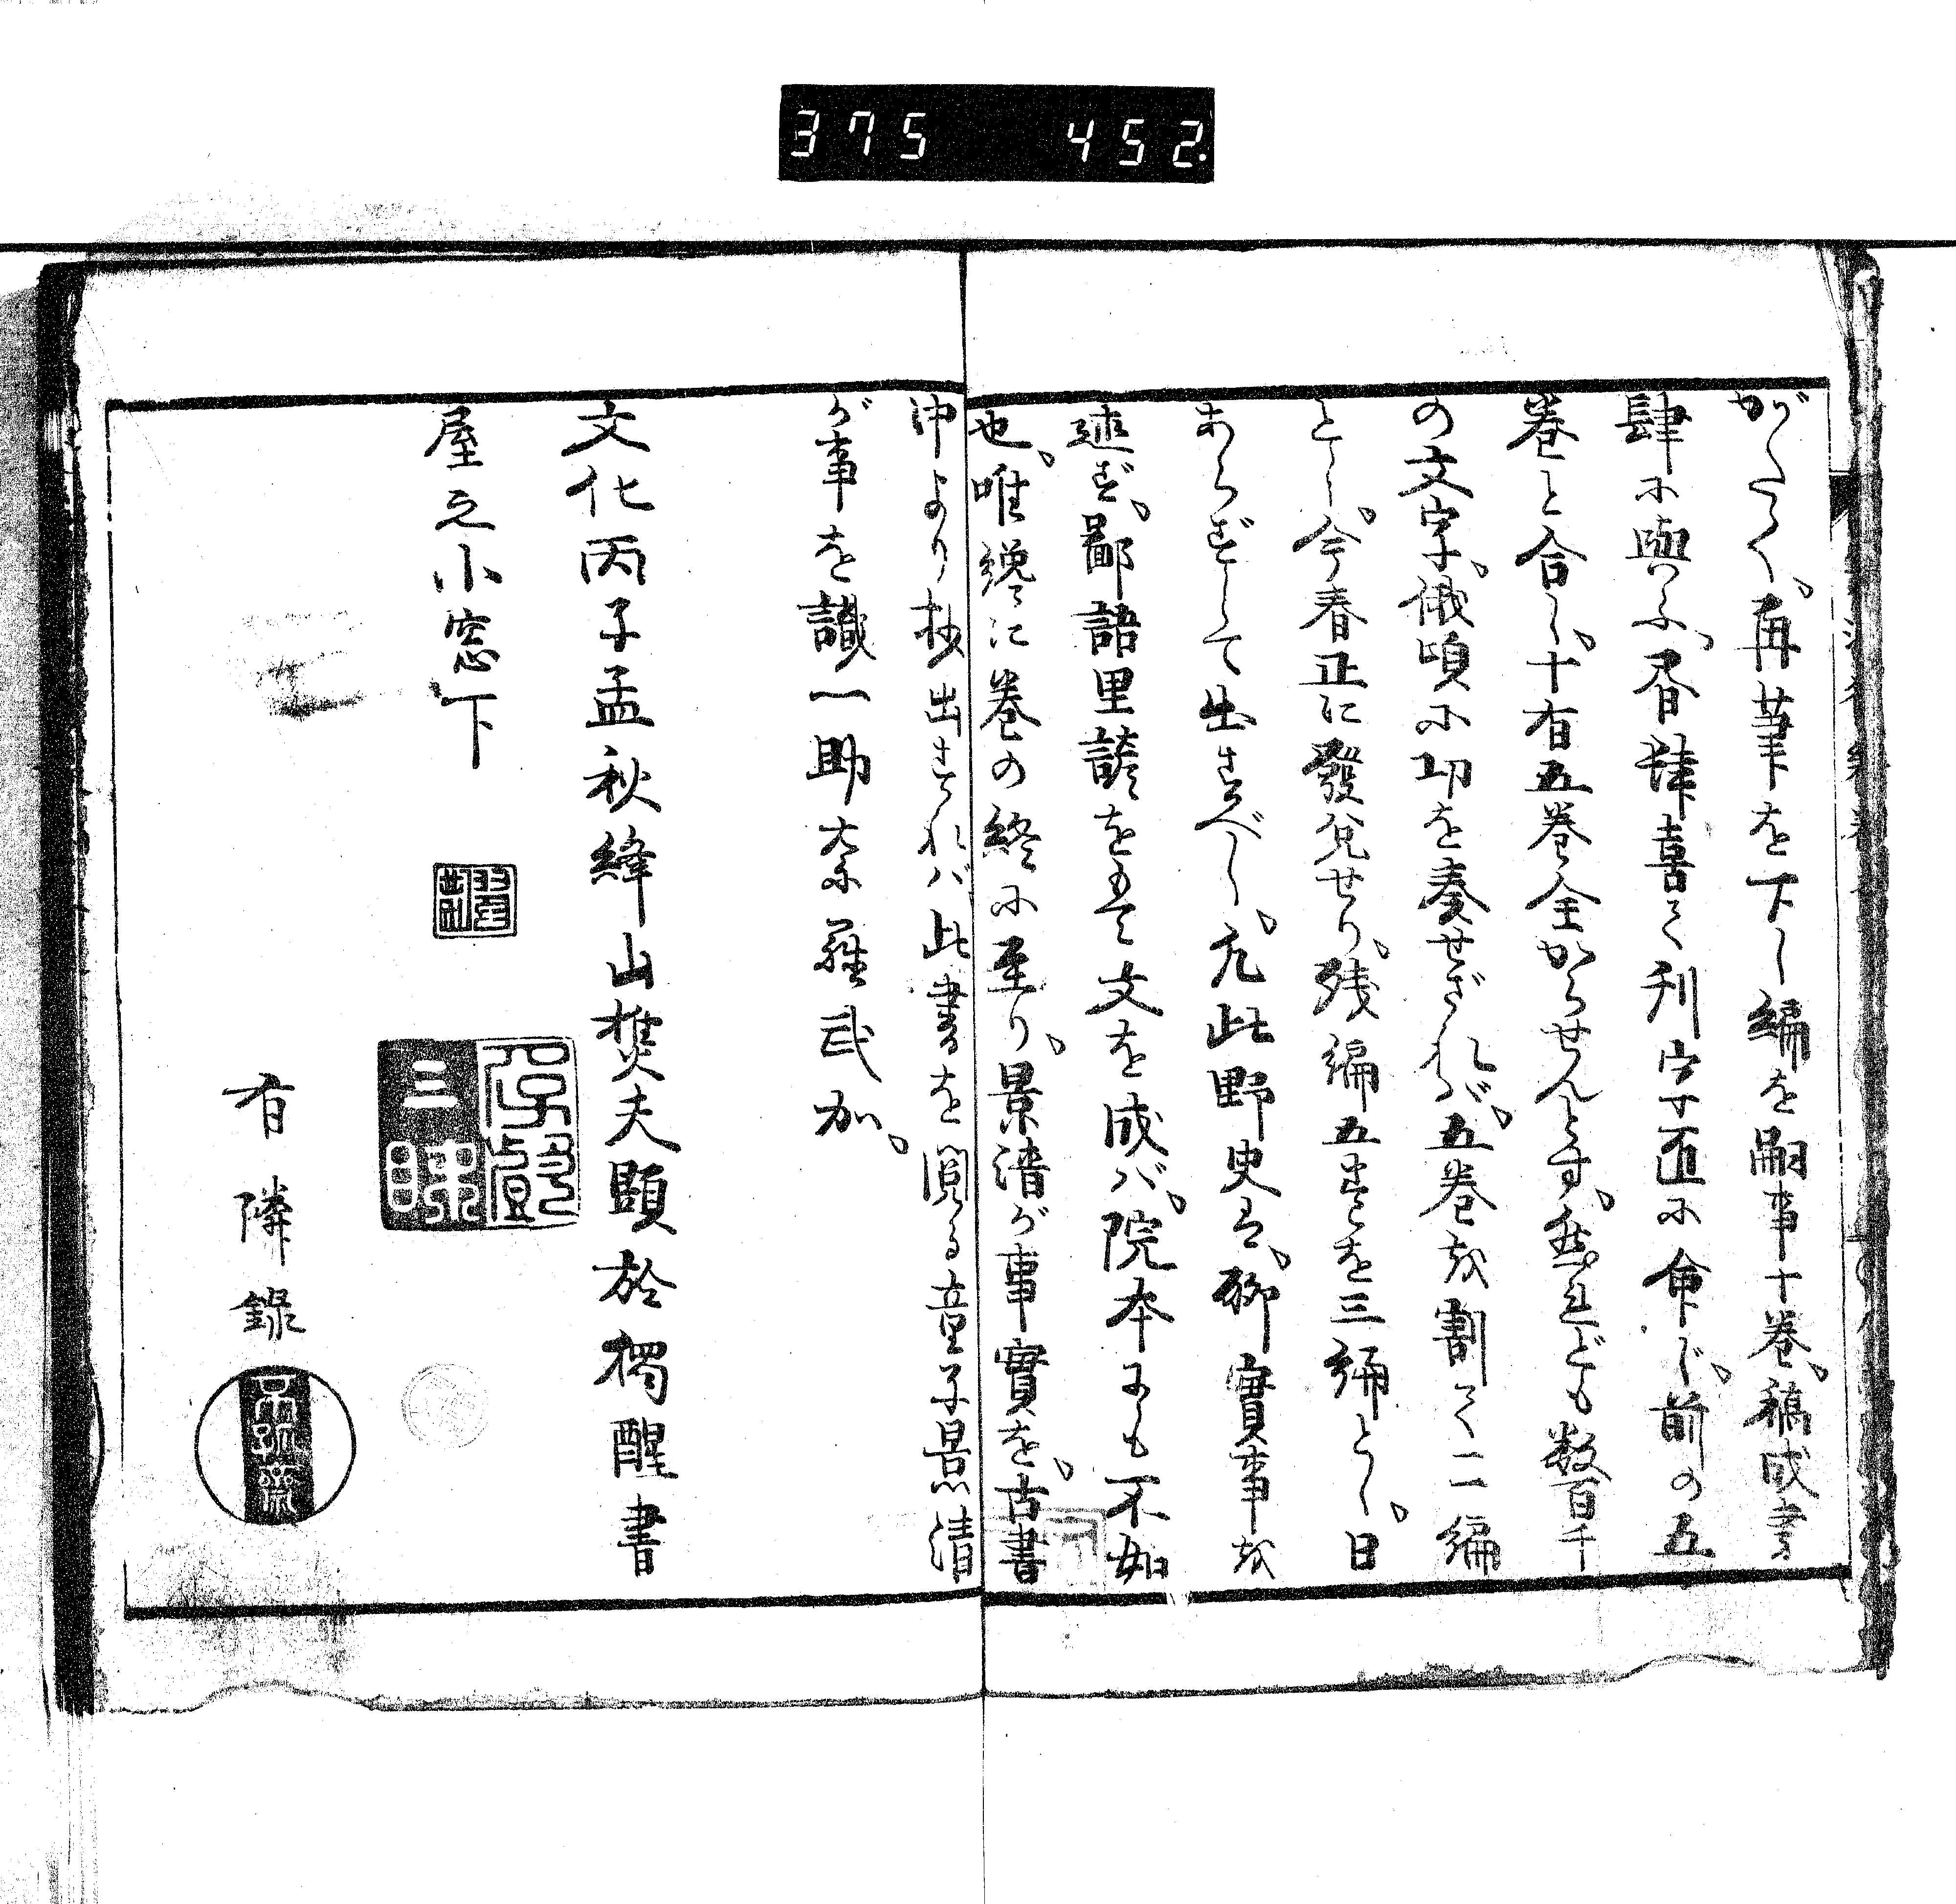 375 452.
がたく、再筆を下し編を嗣事十巻、稿成書
肆に與ふ、肆喜て刊字匠に命じ、前の五
巻と合し、十有五巻全からせんとす、然れども数百千
の文字、俄頃に功を奏せざれば、五巻を割て二編
とし、今春正に發兌せり、残編五巻を三編とし、日
あらずして出すべし、元此野史は、聊實事を
述ず、鄙語里諺を文を成バ、院本にも不如
也、唯纔に巻の終に至り、景清が事實を、古書
中より抄出すれバ、此書を閲る童子景清
が事を識一助奈羅武加、
文化丙子孟秋絳山樵夫題於獨醒書
屋之小窓下
三昧
有隣錄